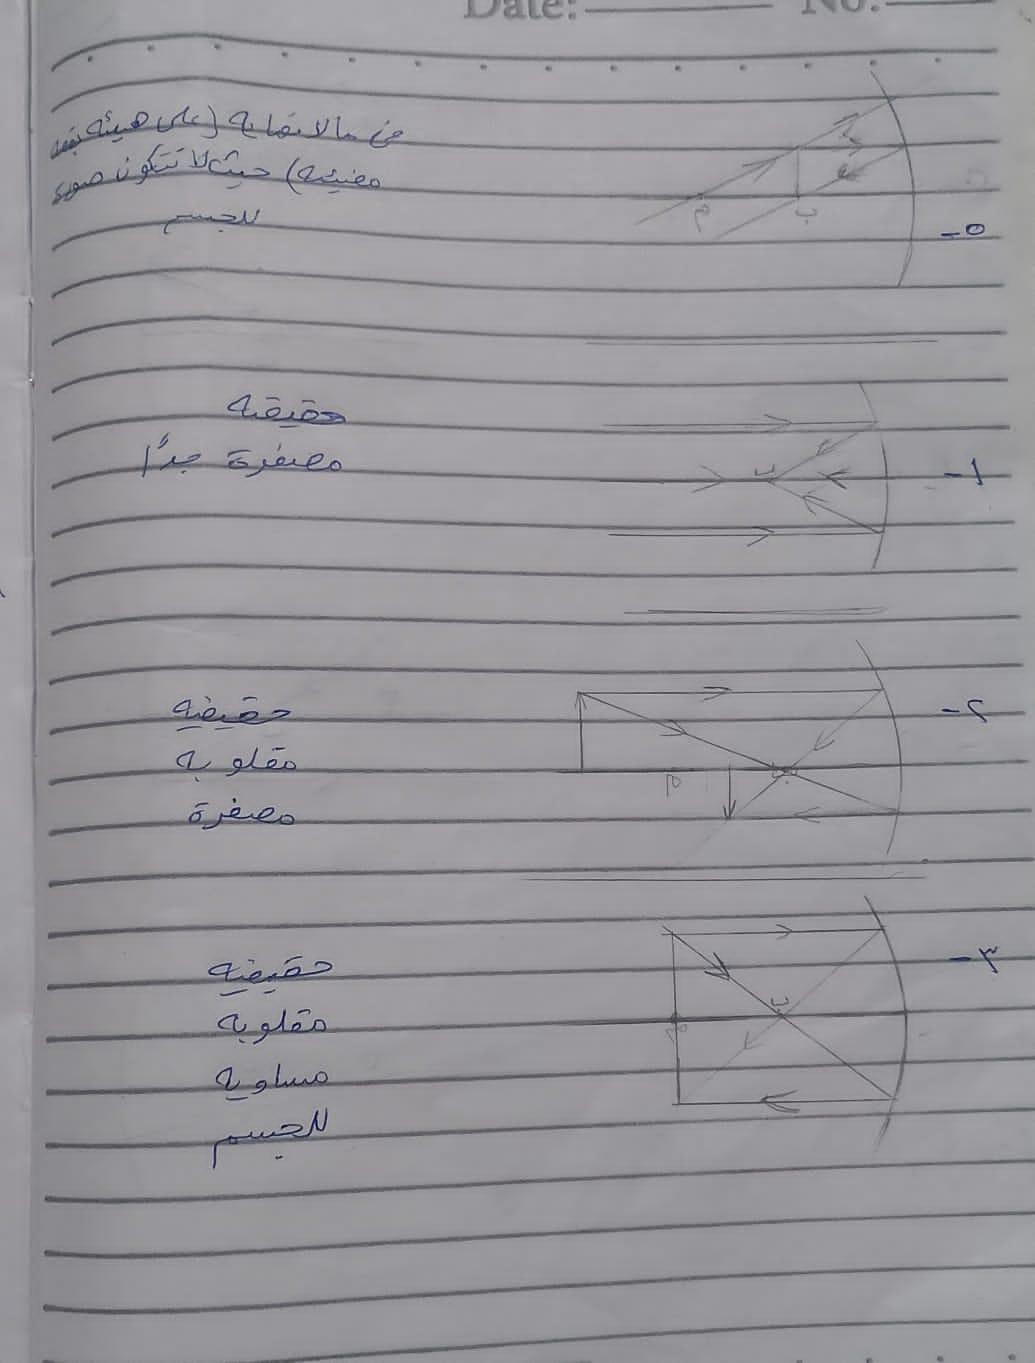 Date: No:
في مالانهاية (على هيئه بقعه
مضيئه) حيث لا تتكون صوره
للجسم
م
ب
٥-
حقيقيه
مصغرة جداً
ب
١-
حقيقيه
مقلوبه
مصغرة
م
ب
٢-
حقيقيه
مقلوبه
مساويه
للجسم
ب
م
٣-